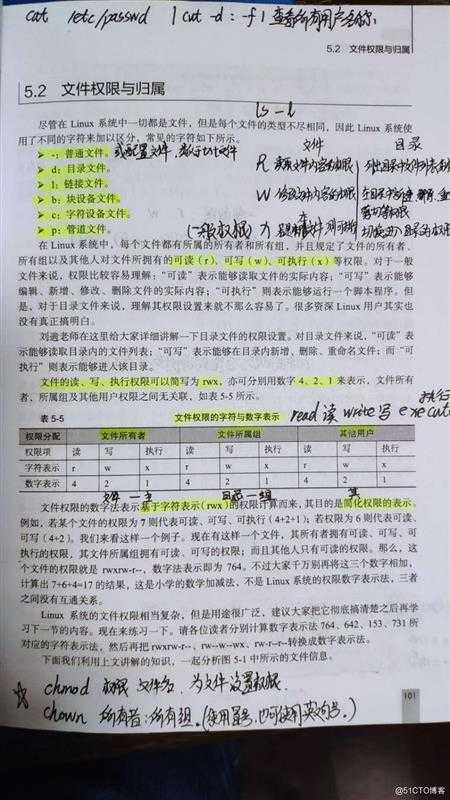 cat /etc/passwd | cut -d : -f1 查看所有用户名称.
5.2 文件权限与归属
5.2 文件权限与归属
ls -l
尽管在 Linux 系统中一切都是文件，但是每个文件的类型不尽相同，因此 Linux 系统使
用了不同的字符来加以区分，常见的字符如下所示。
文件 目录
➢ -：普通文件。
➢ d：目录文件。
➢ l：链接文件。
➢ b：块设备文件。
➢ c：字符设备文件。
➢ p：管道文件。
R
W
在 Linux 系统中，每个文件都有所属的所有者和所有组，并且规定了文件的所有者、
所有组以及其他人对文件所拥有的可读（r）、可写（w）、可执行（x）等权限。对于一般
文件来说，权限比较容易理解：“可读”表示能够读取文件的实际内容；“可写”表示能够
编辑、新增、修改、删除文件的实际内容；“可执行”则表示能够运行一个脚本程序。但
是，对于目录文件来说，理解其权限设置来就不那么容易了。很多资深 Linux 用户其实也
没有真正搞明白。
刘遄老师在这里给大家详细讲解一下目录文件的权限设置。对目录文件来说，“可读”表
示能够读取目录内的文件列表；“可写”表示能够在目录内新增、删除、重命名文件；而“可
执行”则表示能够进入该目录。
文件的读、写、执行权限可以简写为 rwx，亦可分别用数字 4、2、1 来表示，文件所有
者，所属组及其他用户权限之间无关联，如表 5-5 所示。
read 读 write 写 execute 执行
表 5-5 文件权限的字符与数字表示
权限分配 文件所有者 文件所属组 其他用户
权限项 读 写 执行 读 写 执行 读 写 执行
字符表示 r w x r w x r w x
数字表示 4 2 1 4 2 1 4 2 1
文件权限的数字法表示基于字符表示（rwx）的权限计算而来，其目的是简化权限的表示。
例如，若某个文件的权限为 7 则代表可读、可写、可执行（4+2+1）；若权限为 6 则代表可读、
可写（4+2）。我们来看这样一个例子。现在有这样一个文件，其所有者拥有可读、可写、可
执行的权限，其文件所属组拥有可读、可写的权限；而且其他人只有可读的权限。那么，这
个文件的权限就是 rwxrw-r--，数字法表示即为 764。不过大家千万别再将这三个数字相加，
计算出 7+6+4=17 的结果，这是小学的数学加减法，不是 Linux 系统的权限数字表示法，三者
之间没有互通关系。
Linux 系统的文件权限相当复杂，但是用途很广泛，建议大家把它彻底搞清楚之后再学
习下一节的内容。现在来练习一下。请各位读者分别计算数字表示法 764、642、153、731 所
对应的字符表示法，然后再把 rwxrw-r--、rw--w--wx、rw-r--r--转换成数字表示法。
下面我们利用上文讲解的知识，一起分析图 5-1 中所示的文件信息。
☆ chmod 权限 文件名 为文件设置权限.
101
chown 所有者:所有组.(使用冒号,也可使用英文句号.)
@51CTO博客